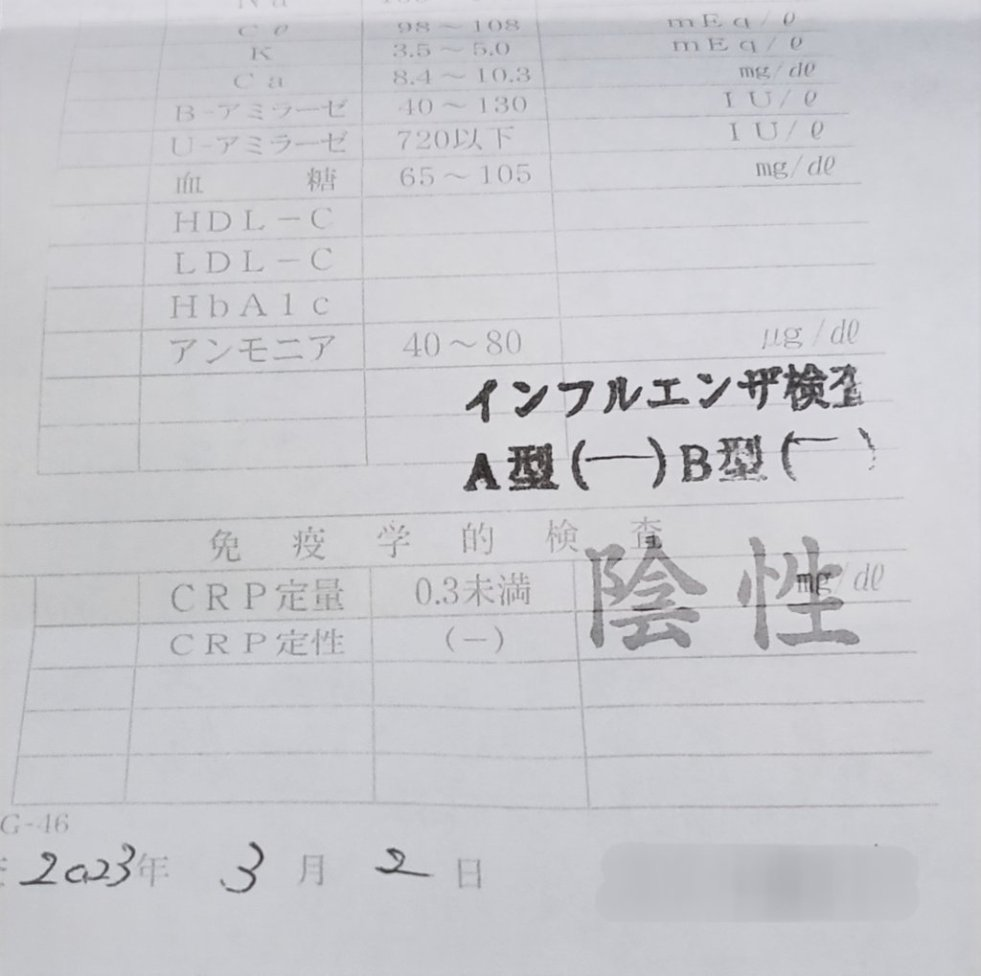 Cℓ 98～108 mEq/ℓ
K 3.5～5.0 mEq/ℓ
Ca 8.4～10.3 mg/dℓ
B-アミラーゼ 40～130 IU/ℓ
U-アミラーゼ 720以下 IU/ℓ
血糖 65～105 mg/dℓ
HDL-C
LDL-C
HbA1c
アンモニア 40～80 μg/dℓ
インフルエンザ検査
A型(一)B型(一)
免疫学的検査
CRP定量 0.3未満 mg/dℓ
陰性
CRP定性 (-)
G-46
2023年 3月 2日